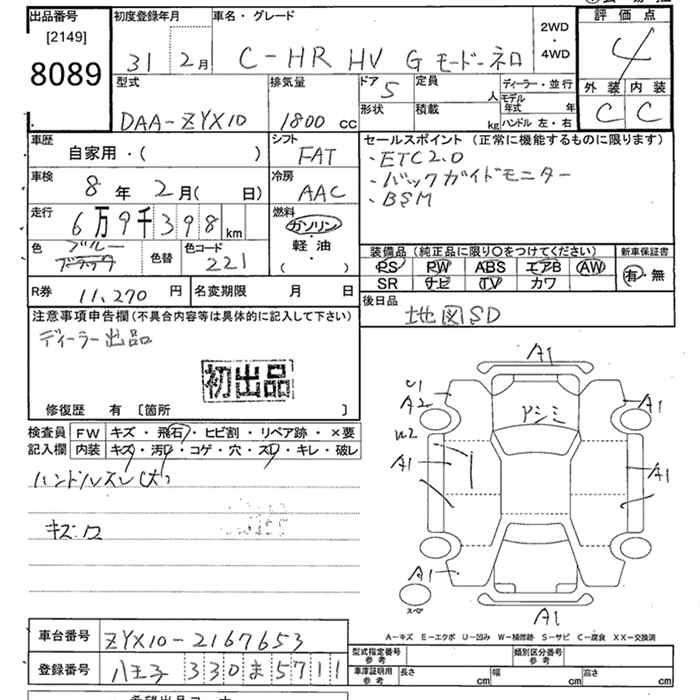 出品番号
[2149]
8089
初度登録年月
31 2月
車名・グレード
C-HR HV G モード・ネロ
2WD
・
4WD
評価点
4
外装 内装
C C
型式
DAA-ZYX10
排気量
1800 CC
ドア 5
形状
定員 人
積載 kg
ディーラー・並行
モデル年式 年
ハンドル 左・右
車歴
自家用・( )
シフト
FAT
車検
8年 2月( 日)
冷房
AAC
走行
6万9千398km
燃料
ガソリン・
軽油・
( )
色 ブルー
色替
色コード
221
R券 11,270円
名変期限 月 日
セールスポイント (正常に機能するものに限ります)
・ETC2.0
・バックガイドモニター
・BSM
装備品 (純正品に限り○をつけてください)
PS PW ABS エアB AW
SR ナビ TV カワ
新車保証書
有・無
後日品
地図SD
注意事項申告欄(不具合内容等は具体的に記入して下さい)
ディーラー出品
初出品
修復歴 有 [箇所 ]
検査員
記入欄
FW キズ・飛石・ヒビ割・リペア跡・×要
内装 キズ・汚レ・コゲ・穴・スレ・キレ・破レ
ハンドルスレ(大)
キズ・ワ
A1
U1
A2
A1
アシミ
U2
A1
A1
A1
A1
スペア
A-キズ E-エクボ U-凹み W-補修跡 S-サビ C-腐食 XX-交換済
車台番号 ZYX10-2167653
登録番号 八王子 330ま5711
型式指定番号
参考
類別区分番号
参考
車庫証明用
参考
長さ cm
幅 cm
高さ cm